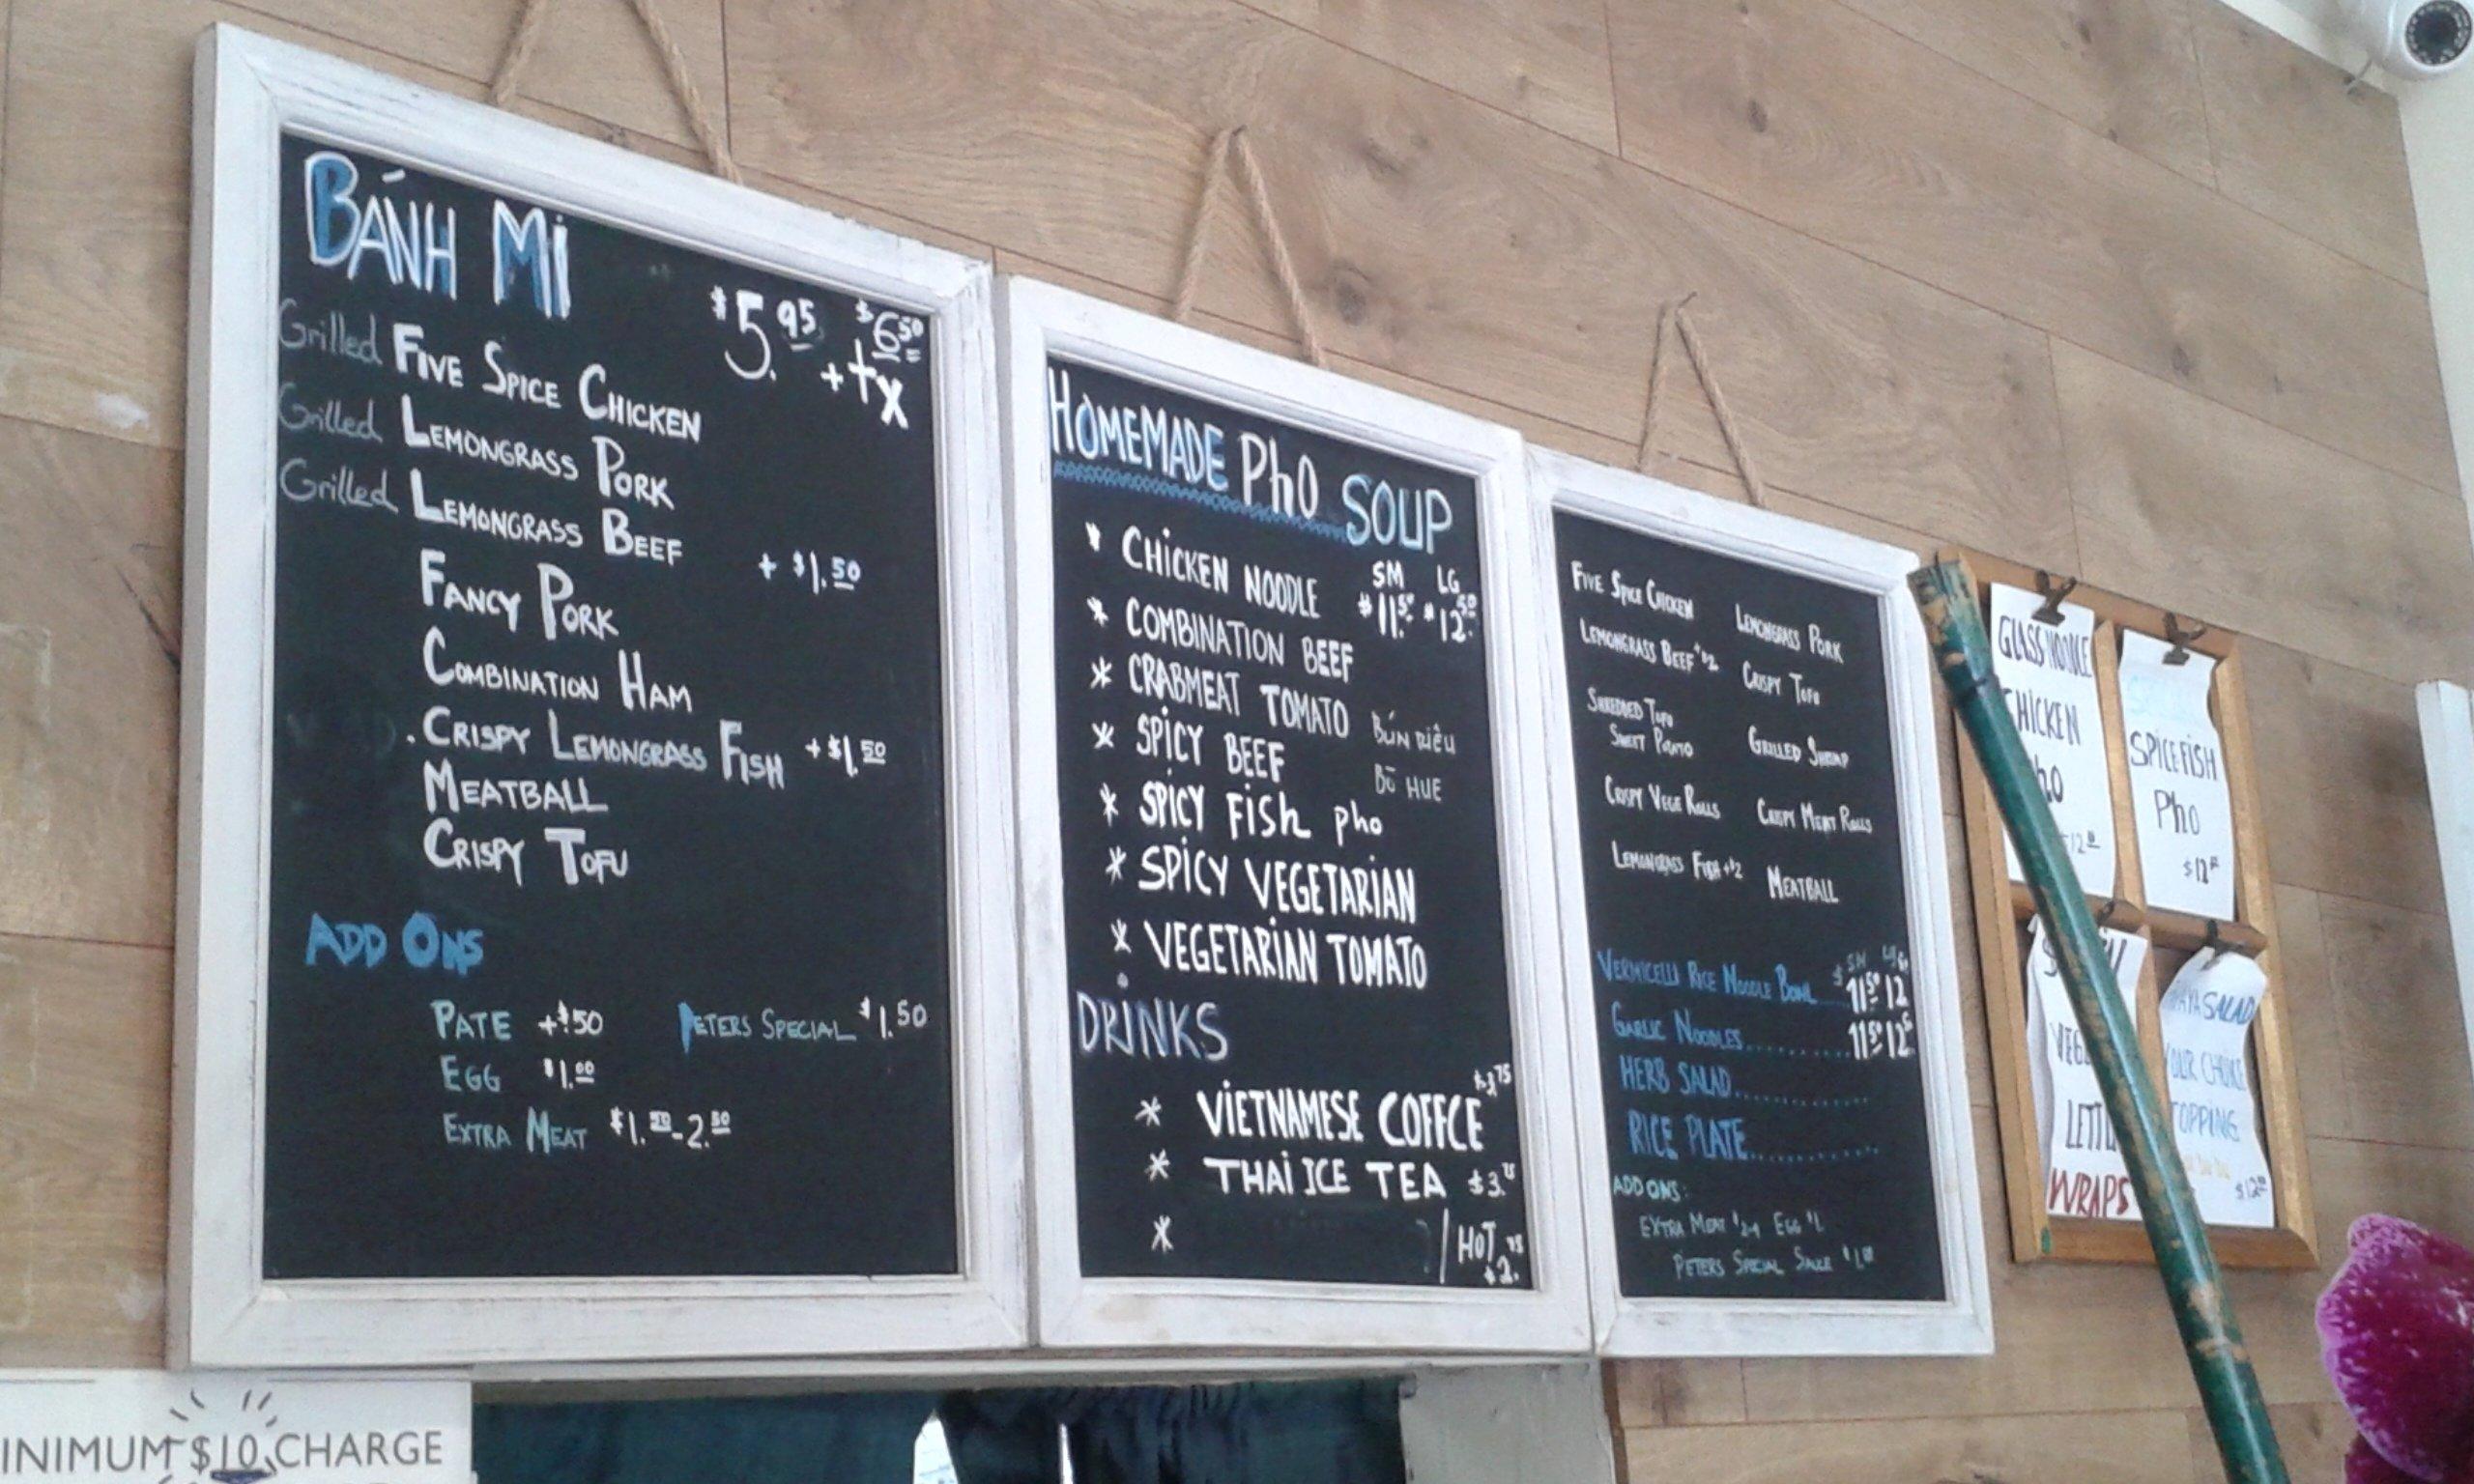 BÁNH Mi
$5.95 $6.50
+tx
Grilled FIVE SPICE CHICKEN
Grilled LEMONGRASS PORK
Grilled LEMONGRASS BEEF + $1.50
FANCY PORK
COMBINATION HAM
. CRISPY LEMONGRASS FISH +$1.50
MEATBALL
CRISPY TOFU
ADD ONS
PATE +$.50 PETERS SPECIAL $1.50
EGG $1.00
EXTRA MEAT $1.50-2.50
HOMEMADE PhO SOUP
SM LG
* CHICKEN NOODLE $11.50 $12.50
* COMBINATION BEEF
* CRABMEAT TOMATO BÚN RIÊU
* SPICY BEEF BÒ HUE
* SPICY FISH pho
* SPICY VEGETARIAN
* VEGETARIAN TOMATO
DRINKS
* VIETNAMESE COFFEE $3.75
* THAI ICE TEA $3.75
* / HOT $2.75
FIVE SPICE CHICKEN LEMONGRASS PORK
LEMONGRASS BEEF +$2 CRISPY TOFU
SHREDDED TOFU
SWEET POTATO GRILLED SHRIMP
CRISPY VEGE ROLLS CRISPY MEAT ROLLS
LEMONGRASS FISH +$2 MEATBALL
SM LG
VERMICELLI RICE NOODLE BOWL $11.50 12
GARLIC NOODLES.......... 11.50 12.5
HERB SALAD............
RICE PLATE............
ADD ONS:
EXTRA MEAT EGG $1
PETERS SPECIAL SAUCE
GLASS NOODLE
CHICKEN
SPICE FISH
Pho
$12
WRAPS
SALAD
YOUR CHOICE
TOPPING
$12
INIMUM $10 CHARGE